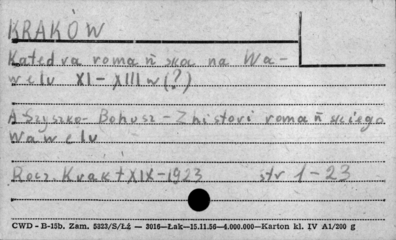 KRAKÓW
Katedra romańska na Wa-
welu XI-XIII w(?)
A Szyszko-Bohusz-Z histori romańskiego
Wawelu
Rocz. Krak t XIX-1923 str 1-23
CWD - B-15b. Zam. 5823/S/Łż — 3016—Łak—15.11.56—4.000.000—Karton kl. IV A1/200 g